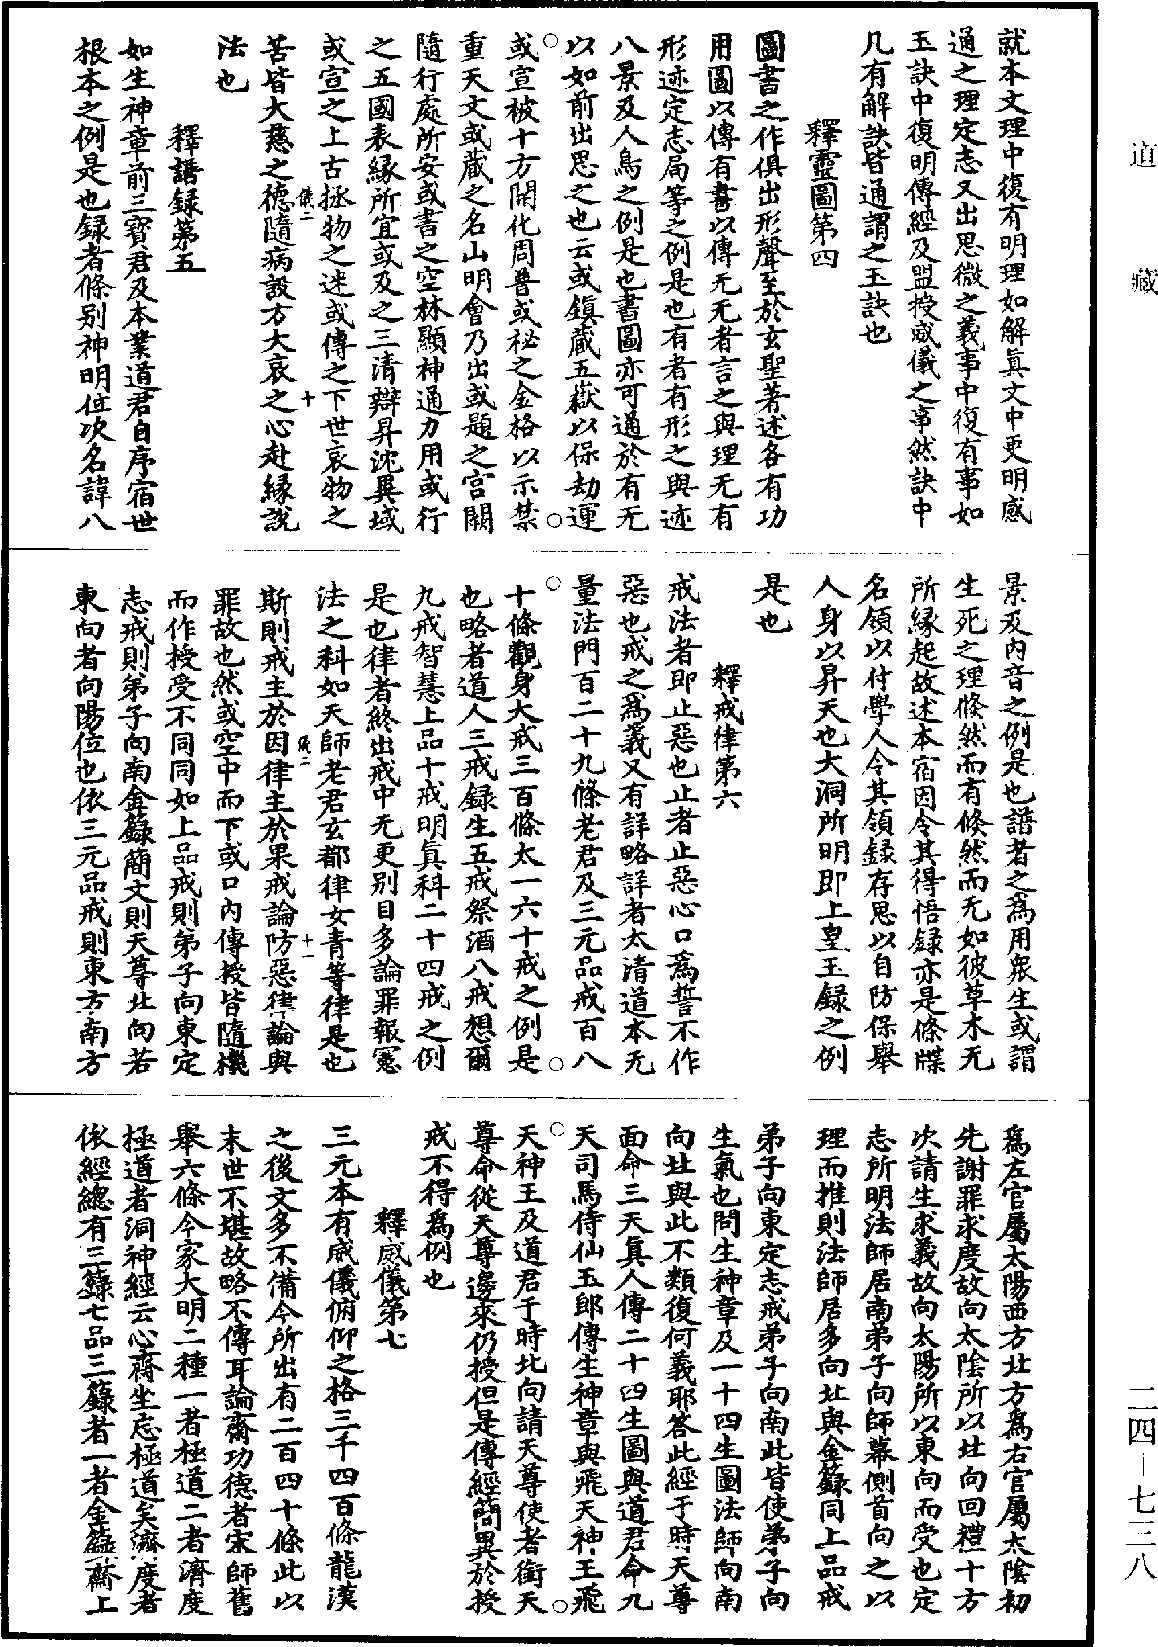 就本文理中復有明理如解真文中更明感
通之理定志又出思微之義事中復有事如
玉訣中復明傳經及盟授威儀之事然訣中
凡有解訣皆通謂之玉訣也
釋靈圖第四
圖書之作俱出形聲至於玄聖著述各有功
用圖以傳有書以傳无无者言之與理无有
形迹定志局等之例是也有者有形之與迹
八景及人鳥之例是也書圖亦可通於有无
以如前出思之也云或鎮藏五嶽以保劫運
或宣被十方開化周普或祕之金格以示禁
重天文或藏之名山明會乃出或題之宮闕
隨行處所安或書之空林顯神通力用或行
之五國表緣所宜或及之三清辯昇沈異域
或宣之上古拯物之迷或傳之下世哀物之
儀二
十
苦皆大慈之德隨病設方大哀之心赴緣說
法也
釋譜錄第五
如生神章前三寶君及本業道君自序宿世
根本之例是也録者條别神明位次名諱八
景及内音之例是也譜者之爲用衆生或謂
生死之理倏然而有倏然而无如彼草木无
所緣起故述本宿因令其得悟録亦是條牒
名領以付學人令其領録存思以自防保舉
人身以昇天也大洞所明即上皇玉録之例
是也
釋戒律第六
戒法者即止惡也止者止惡心口爲誓不作
惡也戒之爲義又有詳略詳者太清道本无
量法門百二十九條老君及三元品戒百八
十條觀身大戒三百條太一六十戒之例是
也略者道人三戒録生五戒祭酒八戒想爾
九戒智慧上品十戒明真科二十四戒之例
是也律者終出戒中无更别目多論罪報憲
法之科如天師老君玄都律女青等律是也
儀二
十一
斯則戒主於因律主於果戒論防惡律論與
罪故也然或空中而下或口内傳授皆隨機
而作授受不同同如上品戒則弟子向東定
志戒則弟子向南金籙簡文則天尊北向若
東向者向陽位也依三元品戒則東方南方
爲左官屬太陽西方北方爲右官屬太陰初
先謝罪求度故向太陰所以北向回禮十方
次請生求義故向太陽所以東向而受也定
志所明法師居南弟子向師幕側首向之以
理而推則法師居多向北與金籙同上品戒
弟子向東定志戒弟子向南此皆使弟子向
生氣也問生神章及一十四生圖法師向南
向北與此不類復何義耶答此經于時天尊
面命三天真人傳二十四生圖與道君命九
天司馬侍仙五郎傳生神章與飛天神王飛
天神王及道君于時北向請天尊使者銜天
尊命從天尊邊來仍授但是傳經簡異於授
戒不得爲例也
釋威儀第七
三元本有威儀俯仰之格三千四百條龍漢
之後文多不備今所出有二百四十條此以
末世不堪故略不傳耳論齋功德者宋師舊
舉六條今家大明二種一者極道二者濟度
極道者洞神經云心齋坐忘極道矣濟度者
依經總有三籙七品三籙者一者金籙齋上
道藏
二四—七三八